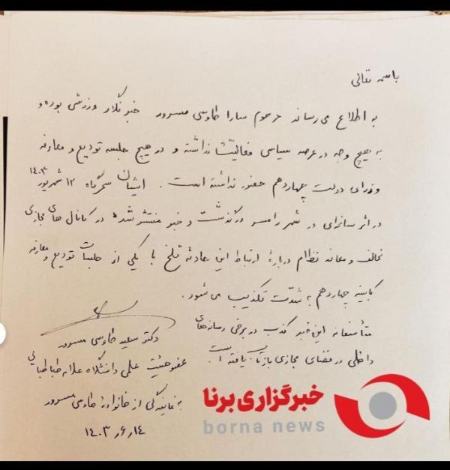 باسمه تعالی
به اطلاع می رساند مرحوم سارا طاوسی مسرور خبرنگار ورزشی بوده و
به هیچ وجه در عرصه سیاسی فعالیتی نداشته و در هیچ جلسه تودیع و معارفه
وزرای دولت چهاردهم حضور نداشته است. ایشان سحرگاه ۱۲ شهریور ۱۴۰۳
در اثر سانحه‌ای در شهر رامسر درگذشت و خبر منتشر شده در کانال های مجازی
مخالف و معاند نظام درباره ارتباط این حادثه تلخ با یکی از جلسات تودیع و معارفه
کابینه چهاردهم به شدت تکذیب می شود.
متأسفانه این خبر کذب در برخی رسانه‌های
داخلی در فضای مجازی بازتاب یافته است.
دکتر سعید طاوسی مسرور
عضو هیئت علمی دانشگاه علامه طباطبایی
به نمایندگی از خانواده طاوسی مسرور
۱۴۰۳٫۶٫۱۴
خبرگزاری برنا
borna news